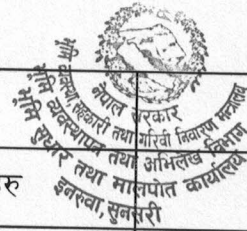 नेपाल सरकार
भूमि व्यवस्था, सहकारी तथा गरिवी निवारण मन्त्रालय
भूमि व्यवस्थापन तथा अभिलेख विभाग
भूमि सुधार तथा मालपोत कार्यालय
इनरुवा, सुनसरी
रु